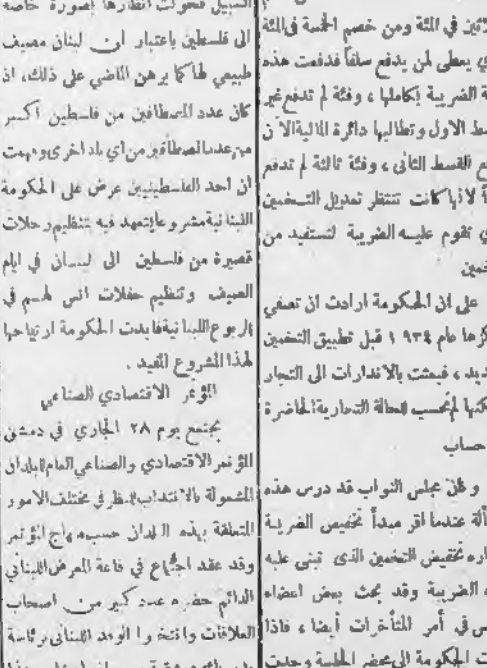 لاثين في المئة ومن خصم الخمسة في المئة
ي يعطى لمن يدفع سلفاً فدفعت هذه
ة الضريبة بكاملها ، وفئة لم تدفع غير
سط الاول وتطالبها دائرة المالية الآن
ع القسط الثاني ، وفئة ثالثة لم تدفع
اً لانها كانت تنتظر تعديل التخمين
ي تقوم عليه الضريبة لتستفيد من
خمين
على ان الحكومة ارادت ان تصفي
كزها عام ١٩٣٤ قبل تطبيق التخمين
ديد ، فبعثت بالانذارات الى التجار
كنها لم تحسب للحالة التجارية الحاضرة
حساب
وظن مجلس النواب قد درس هذه
ألة عندما اقر مبدأ تخفيض الضريبة
اره تخفيض التخمين الذي تبنى عليه
ه الضريبة وقد بحث بعض اعضاء
س في أمر المتأخرات أيضا ، فاذا
ت الحكومة الى محضر الجلسة وجدت
السبيل فحولت انظارها بصورة خاصة
الى فلسطين باعتبار ان لبنان مصيف
طبيعي لها كما برهن الماضي على ذلك، اذ
كان عدد المصطافين من فلسطين اكبر
من عدد المصطافين من اي بلد اخرى وفهمت
ان احد الفلسطينيين عرض على الحكومة
اللبنانية مشروعا يتعهد فيه تنظيم رحلات
قصيرة من فلسطين الى لبنان في ايام
الصيف وتنظيم حفلات انس لهم في
الربوع اللبنانية فابدت الحكومة ارتياحها
لهذا المشروع المفيد .
المؤتمر الاقتصادي الصناعي
يجتمع يوم ٢٨ الجاري في دمشق
المؤتمر الاقتصادي والصناعي العام للبلدان
المشمولة بالانتداب للنظر في مختلف الامور
المتعلقة بهذه البلدان حسب منهاج المؤتمر
وقد عقد اجتماع في قاعة المعرض اللبناني
الدائم حضره عدد كبير من اصحاب
العلاقات وانتخبوا الوفد اللبناني برئاسة